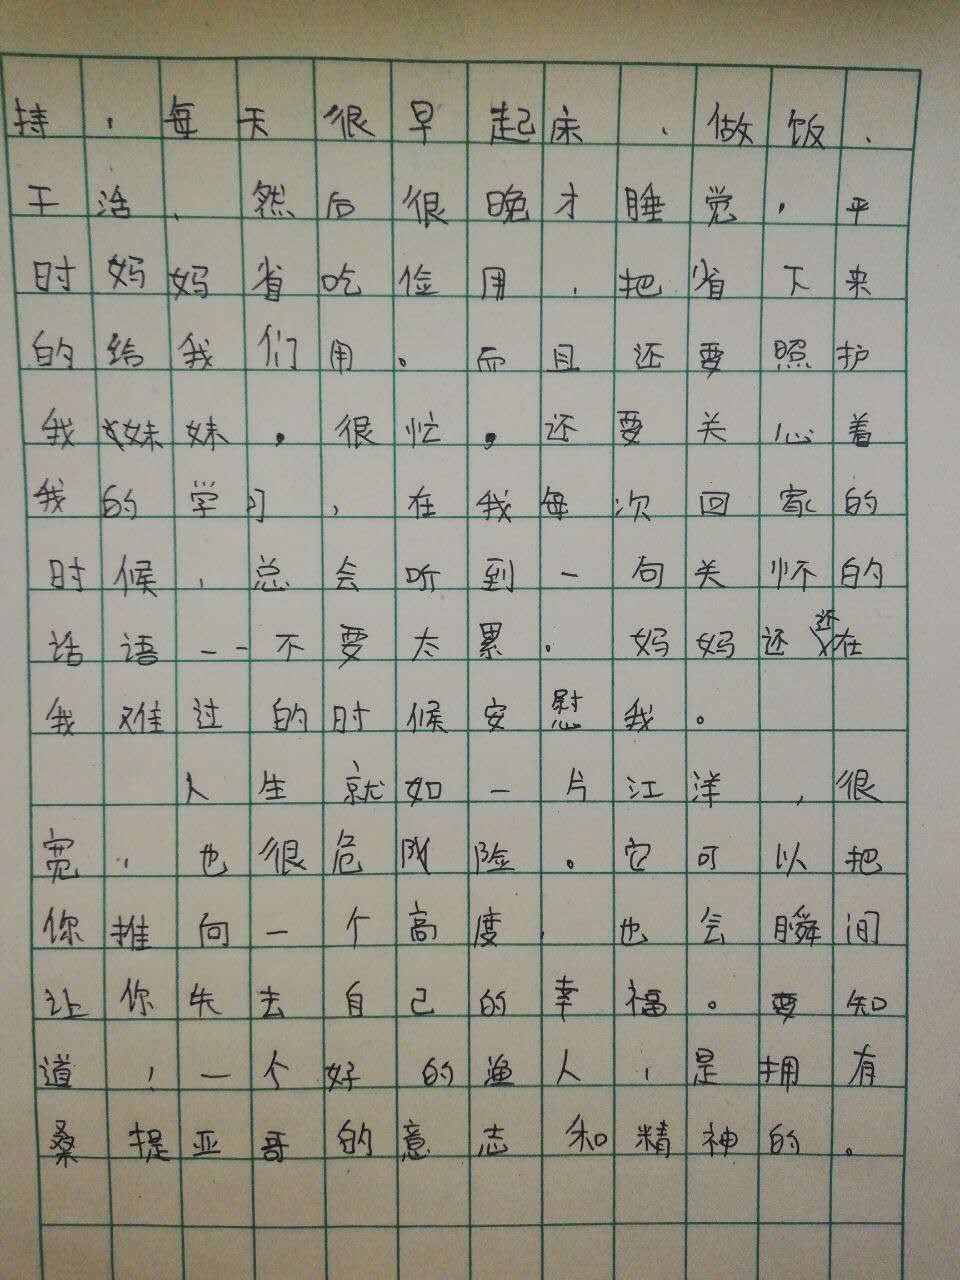 持，每天很早起床、做饭、
干活、然后很晚才睡觉，平
时妈妈省吃俭用，把省下来
的给我们用。而且还要照护
我妹妹，很忙，还要关心着
我的学习，在我每次回家的
时候，总会听到一句关怀的
话语——不要太累。妈妈还还在
我难过的时候安慰我。
人生就如一片江洋，很
宽，也很危险。它可以把
你推向一个高度，也会瞬间
让你失去自己的幸福。要知
道，一个好的渔人，是拥有
桑提亚哥的意志和精神的。